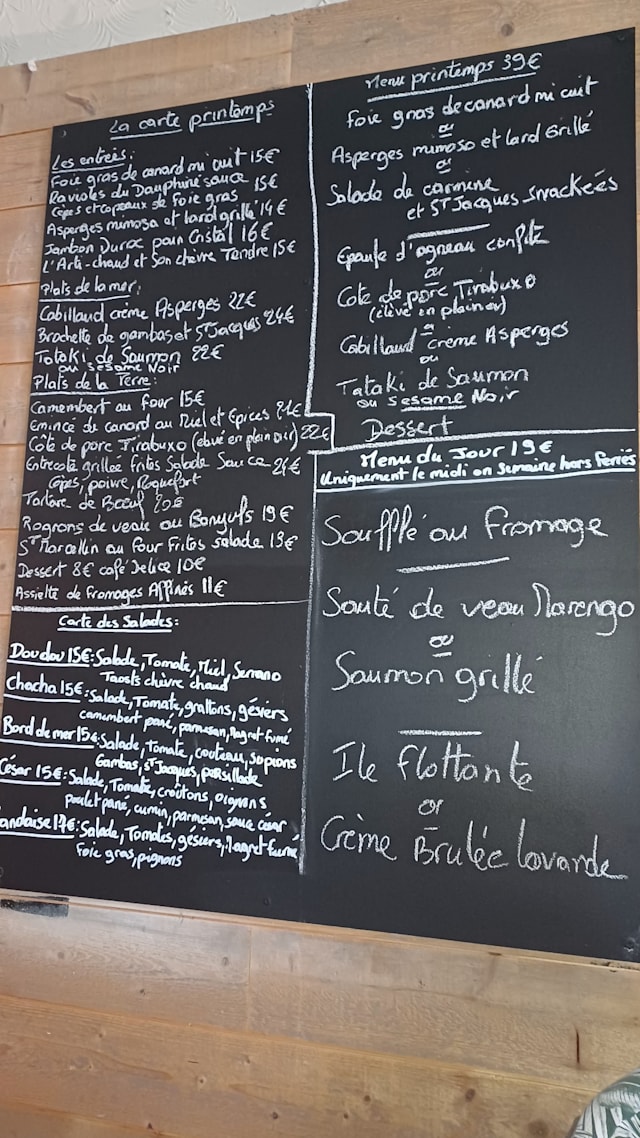 La carte printemps
Les entrées:
Foie gras de canard mi cuit 15€
Ravioles du Dauphiné sauce 15€
Cèpes et copeaux de Foie gras
Asperges mimosa et lard grillé 14€
Jambon Duroc pain Cristal 16€
L'Arti-chaud et Son chèvre Tendre 15€
Plats de la mer:
Cabillaud crème Asperges 22€
Brochette de gambas et St Jacques 24€
Tataki de Saumon 22€
au Sésame Noir
Plats de la Terre:
Camembert au four 15€
Emincé de canard au Miel et Epices
Côte de porc Tirabuxo (élevé en plein air) 22€
Entrecote grillée frites Salade Sauce 24€
Cèpes, poivre, Roquefort
Tartare de Bœuf
Rognons de veau au Banyuls 19€
St Marcellin au four Frites salade
Dessert 8€ café Delice 10€
Assiette de Fromages Affinés 11€
Carte des Salades:
Doudou 15€: Salade, Tomate, Miel, Serrano
Toasts chèvre chaud
Chacha 15€: Salade, Tomate, grattons, gésiers
camembert pané, parmesan, Magret fumé
Bord de mer 15€: Salade, tomate, couteau, supions
Gambas, St Jacques, persillade
César 15€: Salade, Tomate, croûtons, oignons
poulet pané, cumin, parmesan, sauce césar
andaise 17€: Salade, Tomates, gésiers, Magret fumé
Foie gras, pignons
Menu printemps 39€
Foie gras de canard mi cuit
ou
Asperges mimosa et lard Grillé
ou
Salade de carmine
et St Jacques snackées
Epaule d'agneau confite
ou
Cote de porc Tirabuxo
(élevé en plein air)
ou
Cabillaud crème Asperges
ou
Tataki de Saumon
au sesame Noir
Dessert
Menu du Jour 19€
Uniquement le midi en Semaine hors Feriés
Soufflé au fromage
Sauté de veau Marengo
ou
Saumon grillé
Ile flottante
or
Crème Brulée lavande